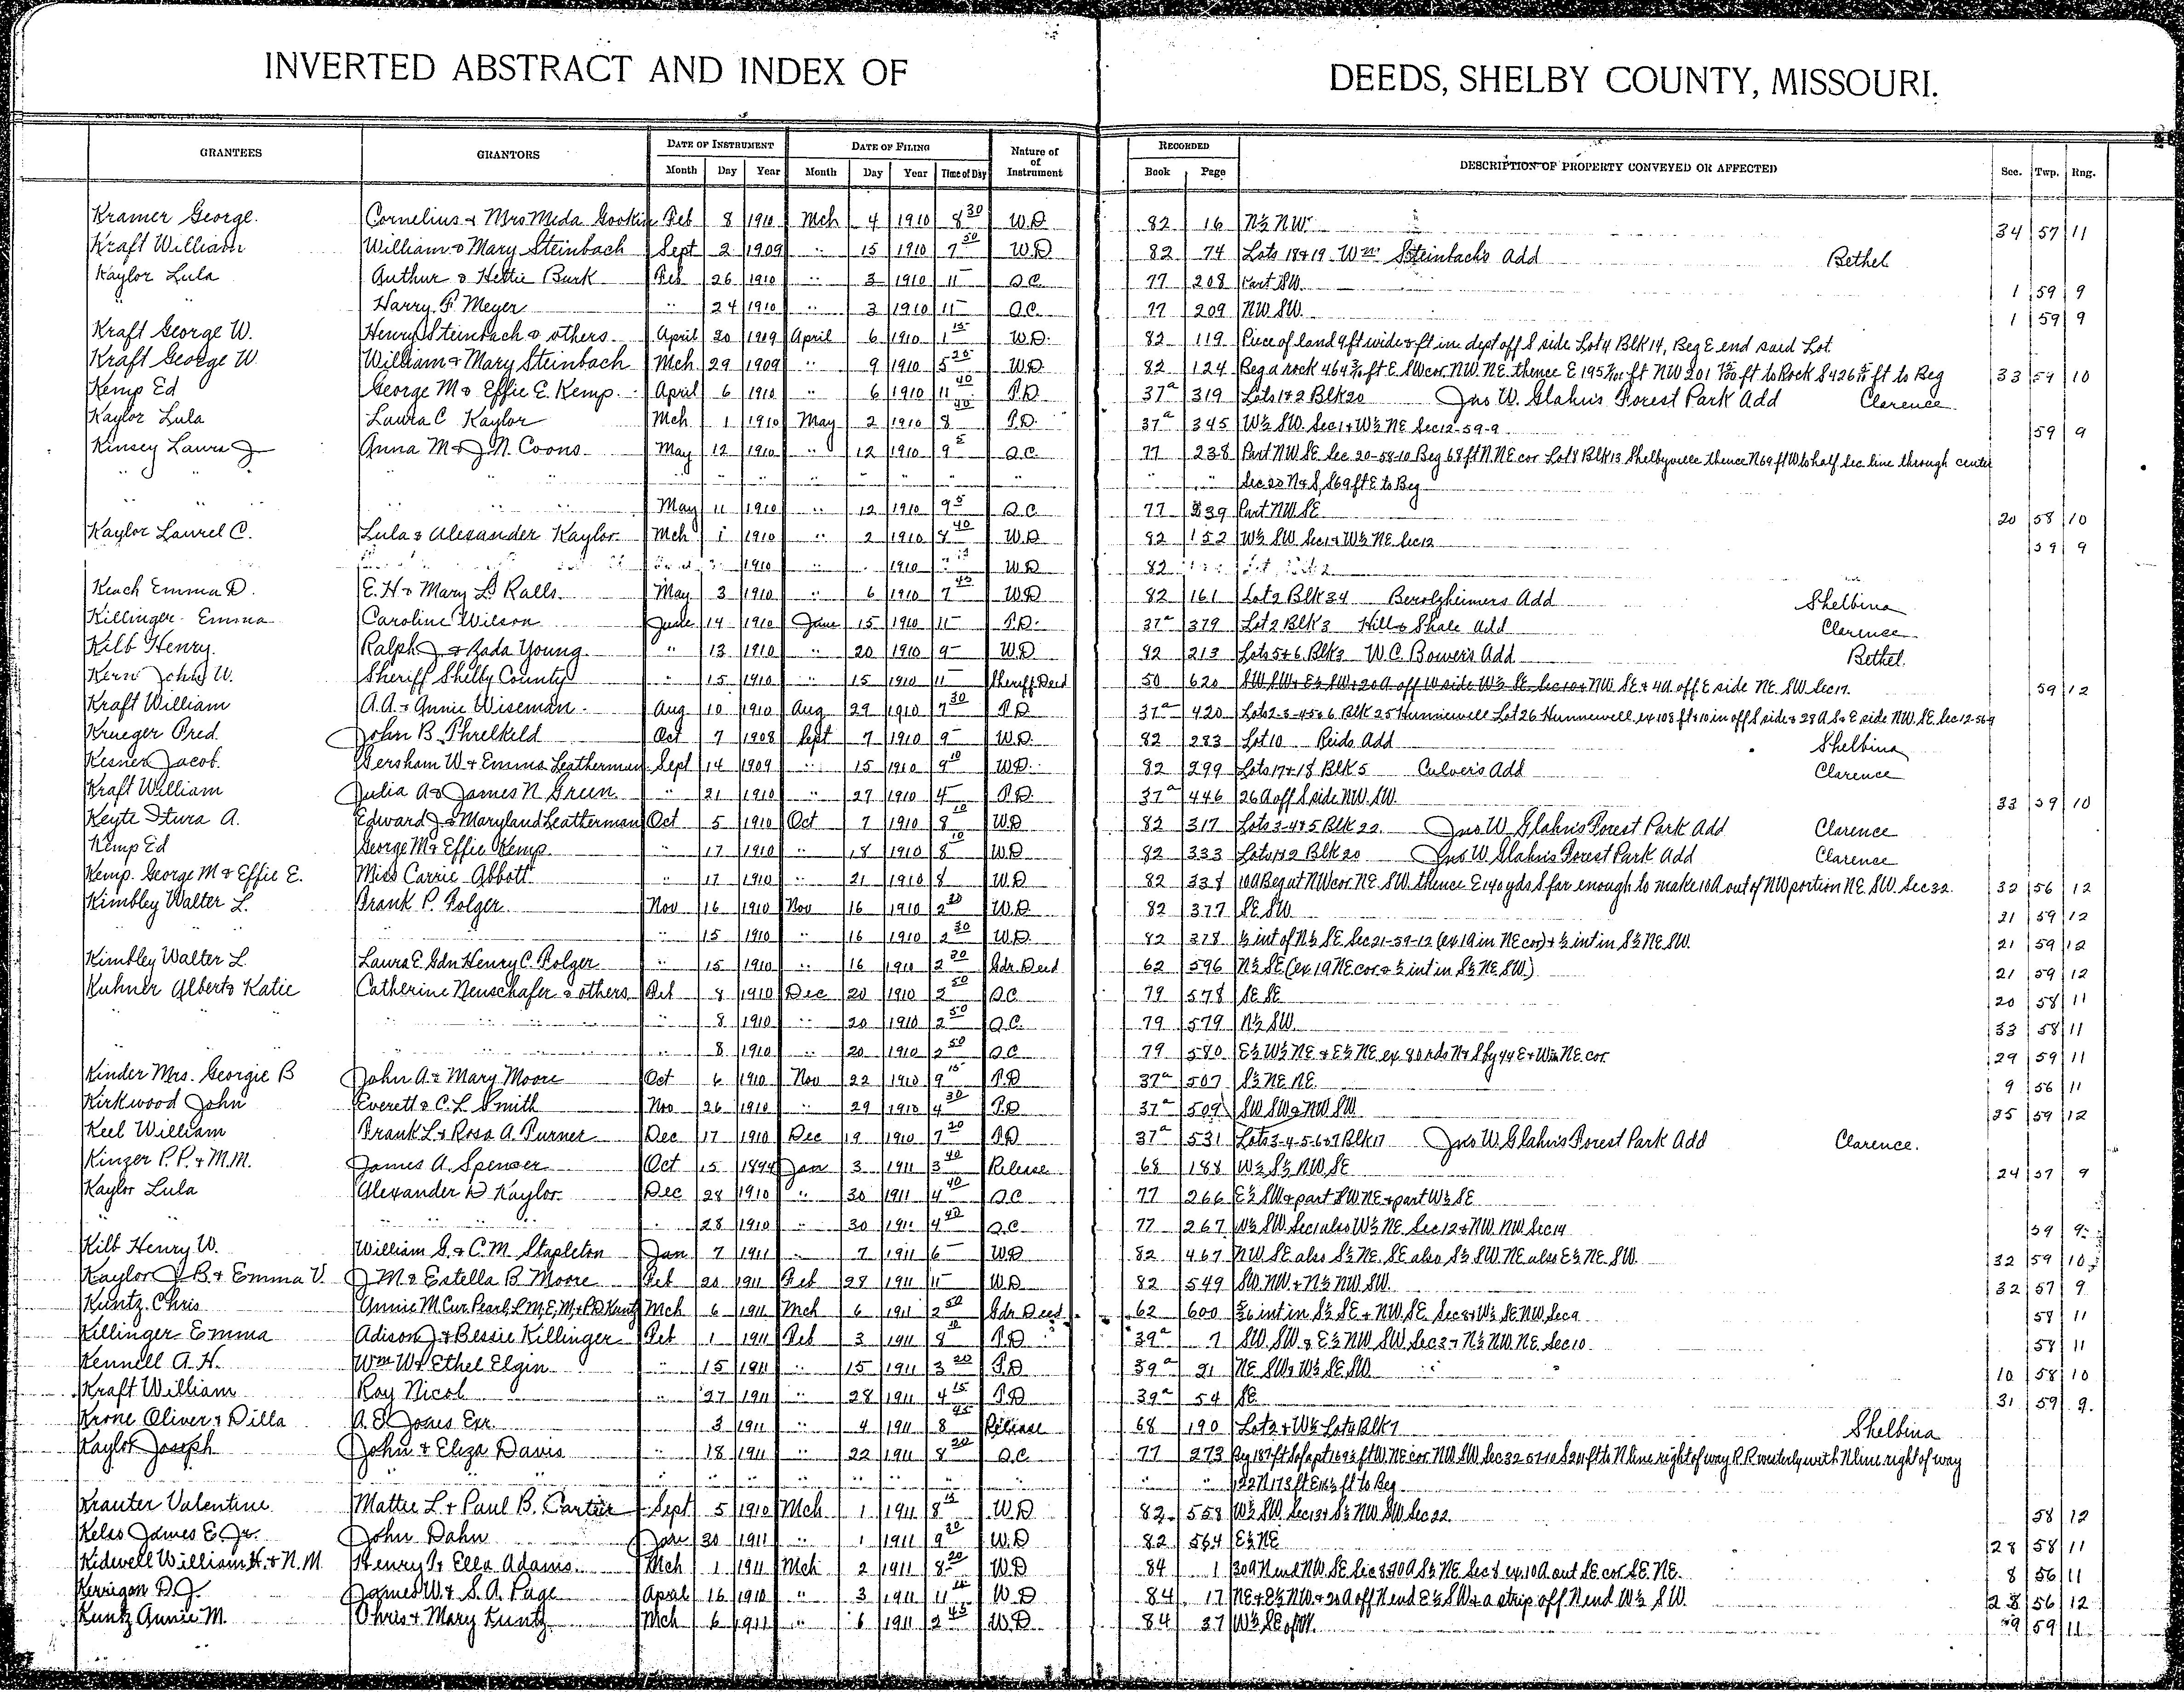 INVERTED ABSTRACT AND INDEX OF DEEDS, SHELBY COUNTY, MISSOURI.
GRANTEES GRANTORS DATE OF INSTRUMENT DATE OF FILING Nature of of Instrument RECORDED DESCRIPTION OF PROPERTY CONVEYED OR AFFECTED Sec. Twp. Rng.
Month Day Year Month Day Year Time of Day Book Page
Kramer George. Cornelius & Mrs Meda Gookin Feb 8 1910 Mch 4 1910 8 30 W.D 82 16 N½ NW 34 57 11
Kraft William William & Mary Steinbach Sept 2 1909 " 15 1910 7 50 W.D 82 74 Lots 18&19 Wm Steinbachs Add Bethel
Kaylor Lula Authur & Hettie Burk Feb 26 1910 " 3 1910 11 - Q.C. 77 208 Part SW. 1 59 9
" " Harry F Meyer " 24 1910 " 3 1910 11 - Q.C. 77 209 NW SW. 1 59 9
Kraft George W. Henry Steinbach & others April 20 1909 April 6 1910 1 15 W.D. 82 119 Piece of land 9ft wide & ft in dept off S side Lot 4 Blk 14, Beg E end said Lot
Kraft George W. William & Mary Steinbach Mch 29 1909 " 9 1910 5 20 W.D 82 124 Beg a rock 464 ft E SW cor NW NE thence E 195 ft NW 201 ft to Rock S 426 ft to Beg 33 59 10
Kemp Ed George M & Effie E. Kemp April 6 1910 " 6 1910 11 40 T.D. 37a 319 Lots 1&2 Blk 20 Jno W. Glahn's Forest Park Add Clarence
Kaylor Lula Laura C Kaylor Mch 1 1910 May 2 1910 8 40 T.D. 37a 345 W½ SW Sec 1 & W½ NE Sec 12-59-9 59 9
Kinsey Laura J Anna M & J. N. Coons May 12 1910 " 12 1910 9 5 Q.C 77 238 Part NW SE Sec 20-58-10 Beg 68 ft N. NE cor Lot 8 Blk 13 Shelbyville thence N 69 ft W to half sec line through center
" " " " " " " " Sec 20 N&S, S 69 ft E to Beg
" " " " May 11 1910 " 12 1910 9 5 Q.C. 77 239 Part NW SE 20 58 10
Kaylor Laurel C. Lula & Alexander Kaylor Mch 1 1910 " 2 1910 8 40 W.D 82 152 W½ SW Sec 1 & W½ NE Sec 12 59 9
1910 " 1910 W.D 82
Keach Emma D. E. H & Mary L. Ralls May 3 1910 " 6 1910 7 45 W.D 82 161 Lot 2 Blk 34 Berolzheimers Add Shelbina
Killinger Emma Caroline Wilson June 14 1910 June 15 1910 11 - T.D. 37a 379 Lot 2 Blk 3 Hill & Shale Add Clarence
Kilb Henry. Ralph J. & Zada Young " 13 1910 " 20 1910 9 - W.D 82 213 Lots 5&6 Blk 3 W. C. Bower's Add Bethel.
Kern John W. Sheriff Shelby County " 15 1910 " 15 1910 11 - Sheriff Deed 50 620 SW SW & E½ SW & 20A off W side W½ SE Sec 10 & NW SE & 4A off E side NE SW Sec 17. 59 12
Kraft William A. A. & Annie Wiseman Aug 10 1910 Aug 29 1910 7 30 T.D 37a 420 Lots 2-3-4-5 & 6 Blk 25 Hunnewell Lot 26 Hunnewell ex 108 ft & 10 in off S side & 28 A S & E side NW SE Sec 12-56-9
Krueger Fred. John B. Threlkeld Oct 7 1908 Sept 7 1910 9 - W.D. 82 283 Lot 10 Reids Add Shelbina
Kesner Jacob. Gersham W & Emma Leatherman Sept 14 1909 " 15 1910 9 10 W.D. 82 299 Lots 17&18 Blk 5 Culver's Add Clarence
Kraft William Julia A & James N Green " 21 1910 " 27 1910 4 - T.D. 37a 446 26 A off S side NW. SW. 33 59 10
Keyte Stura A. Edward J. & Maryland Leatherman Oct 5 1910 Oct 7 1910 8 10 W.D 82 317 Lots 3-4&5 Blk 22. Jno W Glahn's Forest Park Add Clarence
Kemp Ed George M & Effie Kemp " 17 1910 " 18 1910 8 10 W.D 82 333 Lots 1&2 Blk 20 Jno W Glahn's Forest Park Add Clarence
Kemp. George M & Effie E. Miss Carrie Abbott " 17 1910 " 21 1910 8 W.D 82 338 10A Beg at NW cor NE SW. thence E 140 yds S far enough to make 10A out of NW portion NE SW. Sec 32. 32 56 12
Kimbley Walter L. Frank P. Folger Nov 16 1910 Nov 16 1910 2 30 W.D. 82 377 SE SW 21 59 12
" 15 1910 " 16 1910 2 30 W.D. 82 378 ½ int of N½ SE Sec 21-59-12 (ex 1A in NE cor) & ½ int in S½ NE SW. 21 59 12
Kimbley Walter L Laura E. Gdn Henry C. Folger " 15 1910 " 16 1910 2 30 Gdn. Deed 62 596 N½ SE (ex 1A NE cor & ½ int in S½ NE SW.) 21 59 12
Kuhner Albert & Katie Catherine Neuschafer & others Feb 8 1910 Dec 20 1910 2 50 Q.C 79 578 SE SE 20 58 11
" " " " 8 1910 " 20 1910 2 50 Q.C. 79 579 N½ SW. 33 58 11
" 8 1910 " 20 1910 2 50 Q.C 79 580 E½ W½ NE & E½ NE ex 80 rds N & S by 44 E & W in NE cor. 29 59 11
Kinder Mrs. Georgie B John A & Mary Moore Oct 6 1910 Nov 22 1910 9 15 T.D 37a 507 S½ NE NE. 9 56 11
Kirkwood John Everett & C. L Smith Nov 26 1910 " 29 1910 4 30 T.D 37a 509 SW SW & NW SW 35 59 12
Keel William Frank L & Rosa A. Turner Dec 17 1910 Dec 19 1910 7 20 T.D 37a 531 Lots 3-4-5-6&7 Blk 17 Jno W. Glahn's Forest Park Add Clarence.
Kinzer P. P. & M. M. James A. Spencer Oct 15 1894 Jan 3 1911 3 40 Release 68 188 W½ S½ NW SE 24 57 9
Kaylor Lula Alexander D Kaylor. Dec 28 1910 " 30 1911 4 40 Q.C 77 266 E½ SW & part SW NE & part W½ SE
" " " " 28 1910 " 30 1911 4 40 Q.C. 77 267 W½ SW. Sec 1 also W½ NE Sec 12 & NW NW Sec 14 59 9
Kilb Henry W. William G. & C. M. Stapleton Jan 7 1911 " 7 1911 6 - W.D 82 467 NW SE also S½ NE. SE also S½ SW NE also E½ NE SW. 32 59 10
Kaylor J B & Emma V. J M & Estella B Moore Feb 20 1911 Feb 28 1911 11 - W.D 82 549 SW. NW & N½ NW SW. 32 57 9
Kuntz. Chris Annie M. Cur. Pearl, L. M, E, M, & P. D Kuntz Mch 6 1911 Mch 6 1911 2 50 Gdn Deed 62 600 int in S½ SE & NW SE Sec 8 & W½ SE NW Sec 9 58 11
Killinger Emma Adison J & Bessie Killinger Feb 1 1911 Feb 3 1911 8 10 T.D 39a 7 SW. SW & E½ NW SW Sec 3 & N½ NW NE Sec 10. 58 11
Kennell A. H. Wm W & Ethel Elgin " 15 1911 " 15 1911 3 20 T.D 39a 21 NE SW & W½ SE SW 10 58 10
Kraft William Roy Nicol " 27 1911 " 28 1911 4 15 T.D 39a 54 SE 31 59 9.
Krone Oliver & Dilla A. E. Jones Exr. " 3 1911 " 4 1911 8 45 Release 68 190 Lot 2 & W½ Lot 9 Blk 7 Shelbina
Kaylor Joseph John & Eliza Davis " 18 1911 " 22 1911 8 20 Q.C 77 273 Beg 187 ft S of a pt 169½ ft W. NE cor. NW. SW Sec 32 57-10 S 201 ft to N line right of way R R westerly with N line right of way
" " " " " " " " 122 N 173 ft E 118½ ft to Beg
Krauter Valentine Mattie L & Paul B. Cartier Sept 5 1910 Mch 1 1911 8 15 W.D 82 558 W½ SW Sec 13 & S½ NW SW Sec 22 58 12
Kelso James E. Jr. John Dahn Jan 30 1911 " 1 1911 9 30 W.D 82 564 E½ NE 28 58 11
Kidwell William H. & N. M Henry J & Ella Adams Mch 1 1911 Mch 2 1911 8 20 W.D 84 1 30A N end NW. SE Sec 8 & 70A S½ NE Sec 8 ex 10A out SE cor SE. NE. 8 56 11
Kerrigan D. J. James W. & S. A. Page April 16 1910 " 3 1911 11 W.D 84 17 NE & E½ NW & 20A off N end E½ SW & a strip off N end W½ SW. 28 56 12
Kuntz Annie M. Chris & Mary Kuntz Mch 6 1911 " 6 1911 2 45 W.D 84 37 W½ SE of NW. 9 59 11